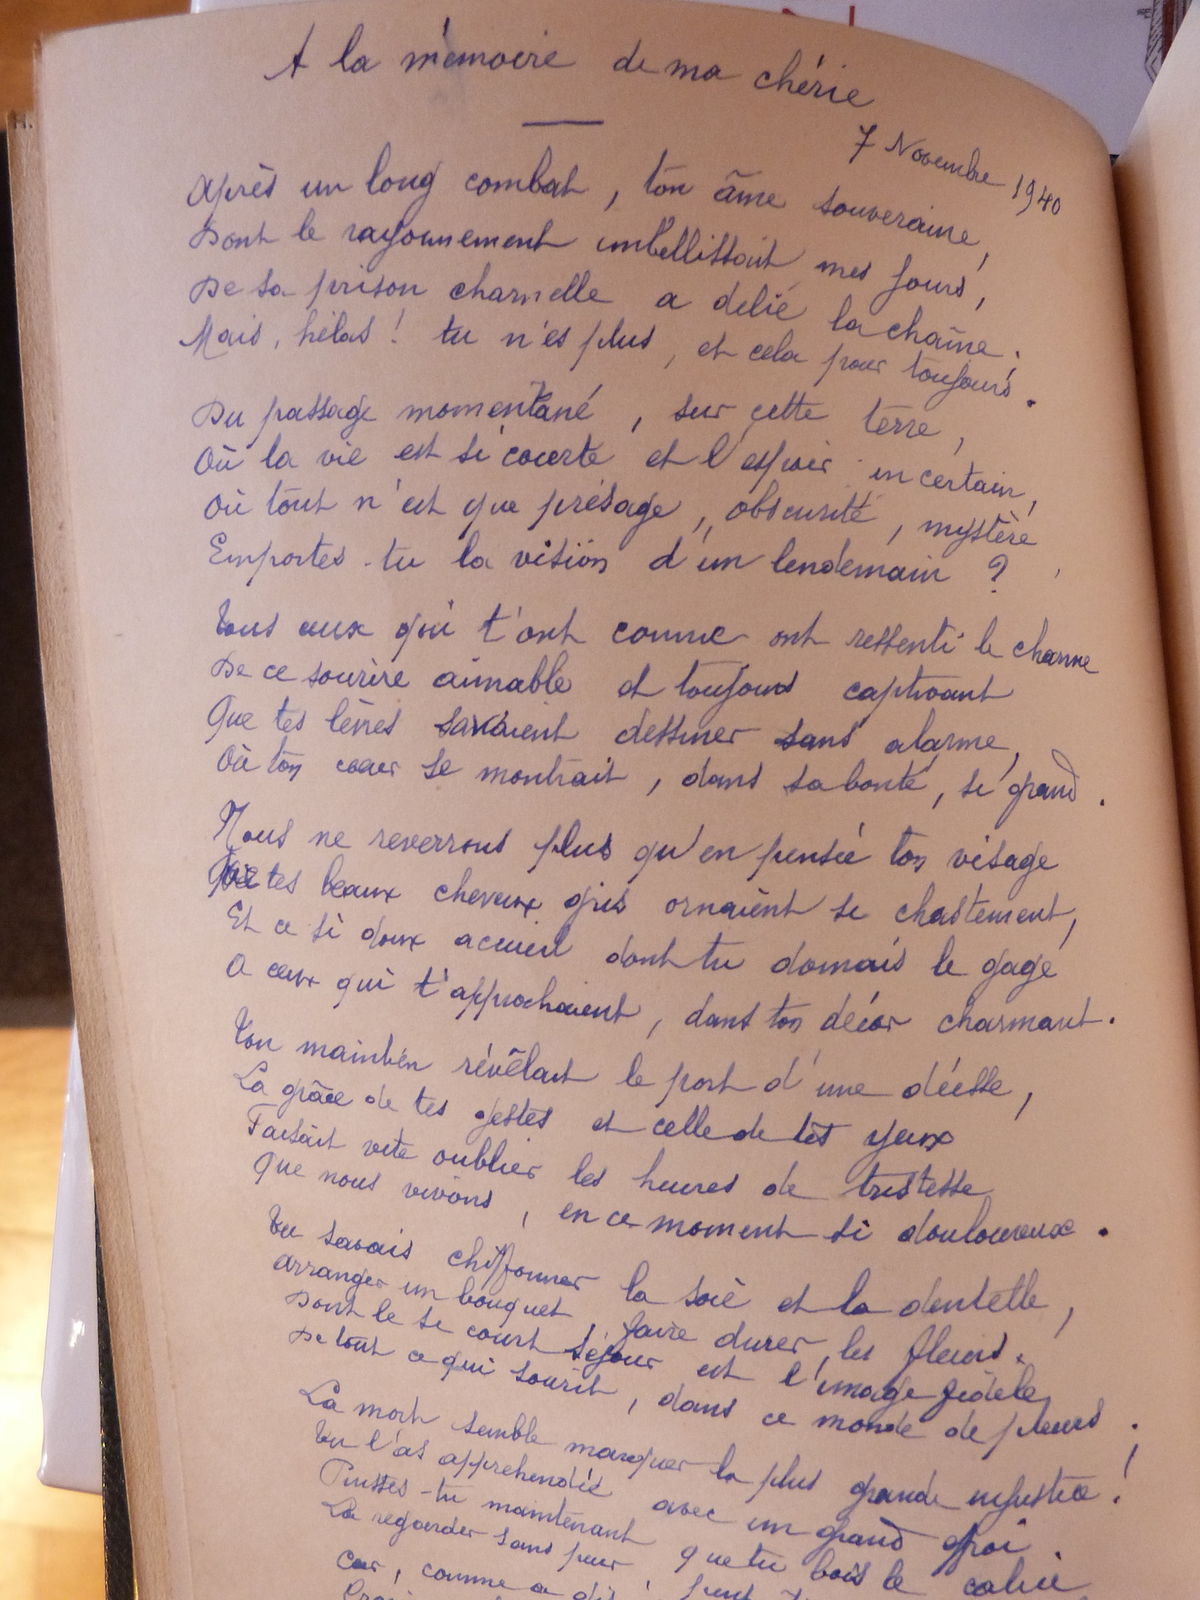 A la mémoire de ma chérie
7 Novembre 1940
Après un long combat, ton âme souveraine,
Dont le rayonnement embellissait mes jours,
De sa prison charnelle a delié la chaîne.
Mais, hélas ! tu n'es plus, et cela pour toujours.
Du passage momentané, sur cette terre,
Où la vie est si courte et l'espoir incertain,
Où tout n'est que présage, obscurité, mystère,
Emportes-tu la vision d'un lendemain ?
Tous ceux qui t'ont connue ont ressenti le charme
De ce sourire aimable et toujours captivant
Que tes lèvres savaient dessiner sans alarme,
Où ton coeur se montrait, dans sa bonté, si grand.
Nous ne reverrons plus qu'en pensée ton visage
Que tes beaux cheveux gris ornaient si chastement,
Et ce si doux accueil dont tu donnais le gage
A ceux qui t'approchaient, dans ton décor charmant.
Ton maintien révélait le port d'une déesse,
La grâce de tes gestes et celle de tes yeux
Faisait vite oublier les heures de tristesse
Que nous vivons, en ce moment si douloureux.
Tu savais chiffonner la soie et la dentelle,
Arranger un bouquet, faire durer les fleurs.
Dont le si court séjour est l'image fidèle
De tout ce qui sourit, dans ce monde de pleurs.
La mort semble marquer la plus grande injustice !
Tu l'as appréhendée avec un grand froi.
Puisses-tu maintenant que tu bois le calice
La regarder sans peur
Car, comme a dit